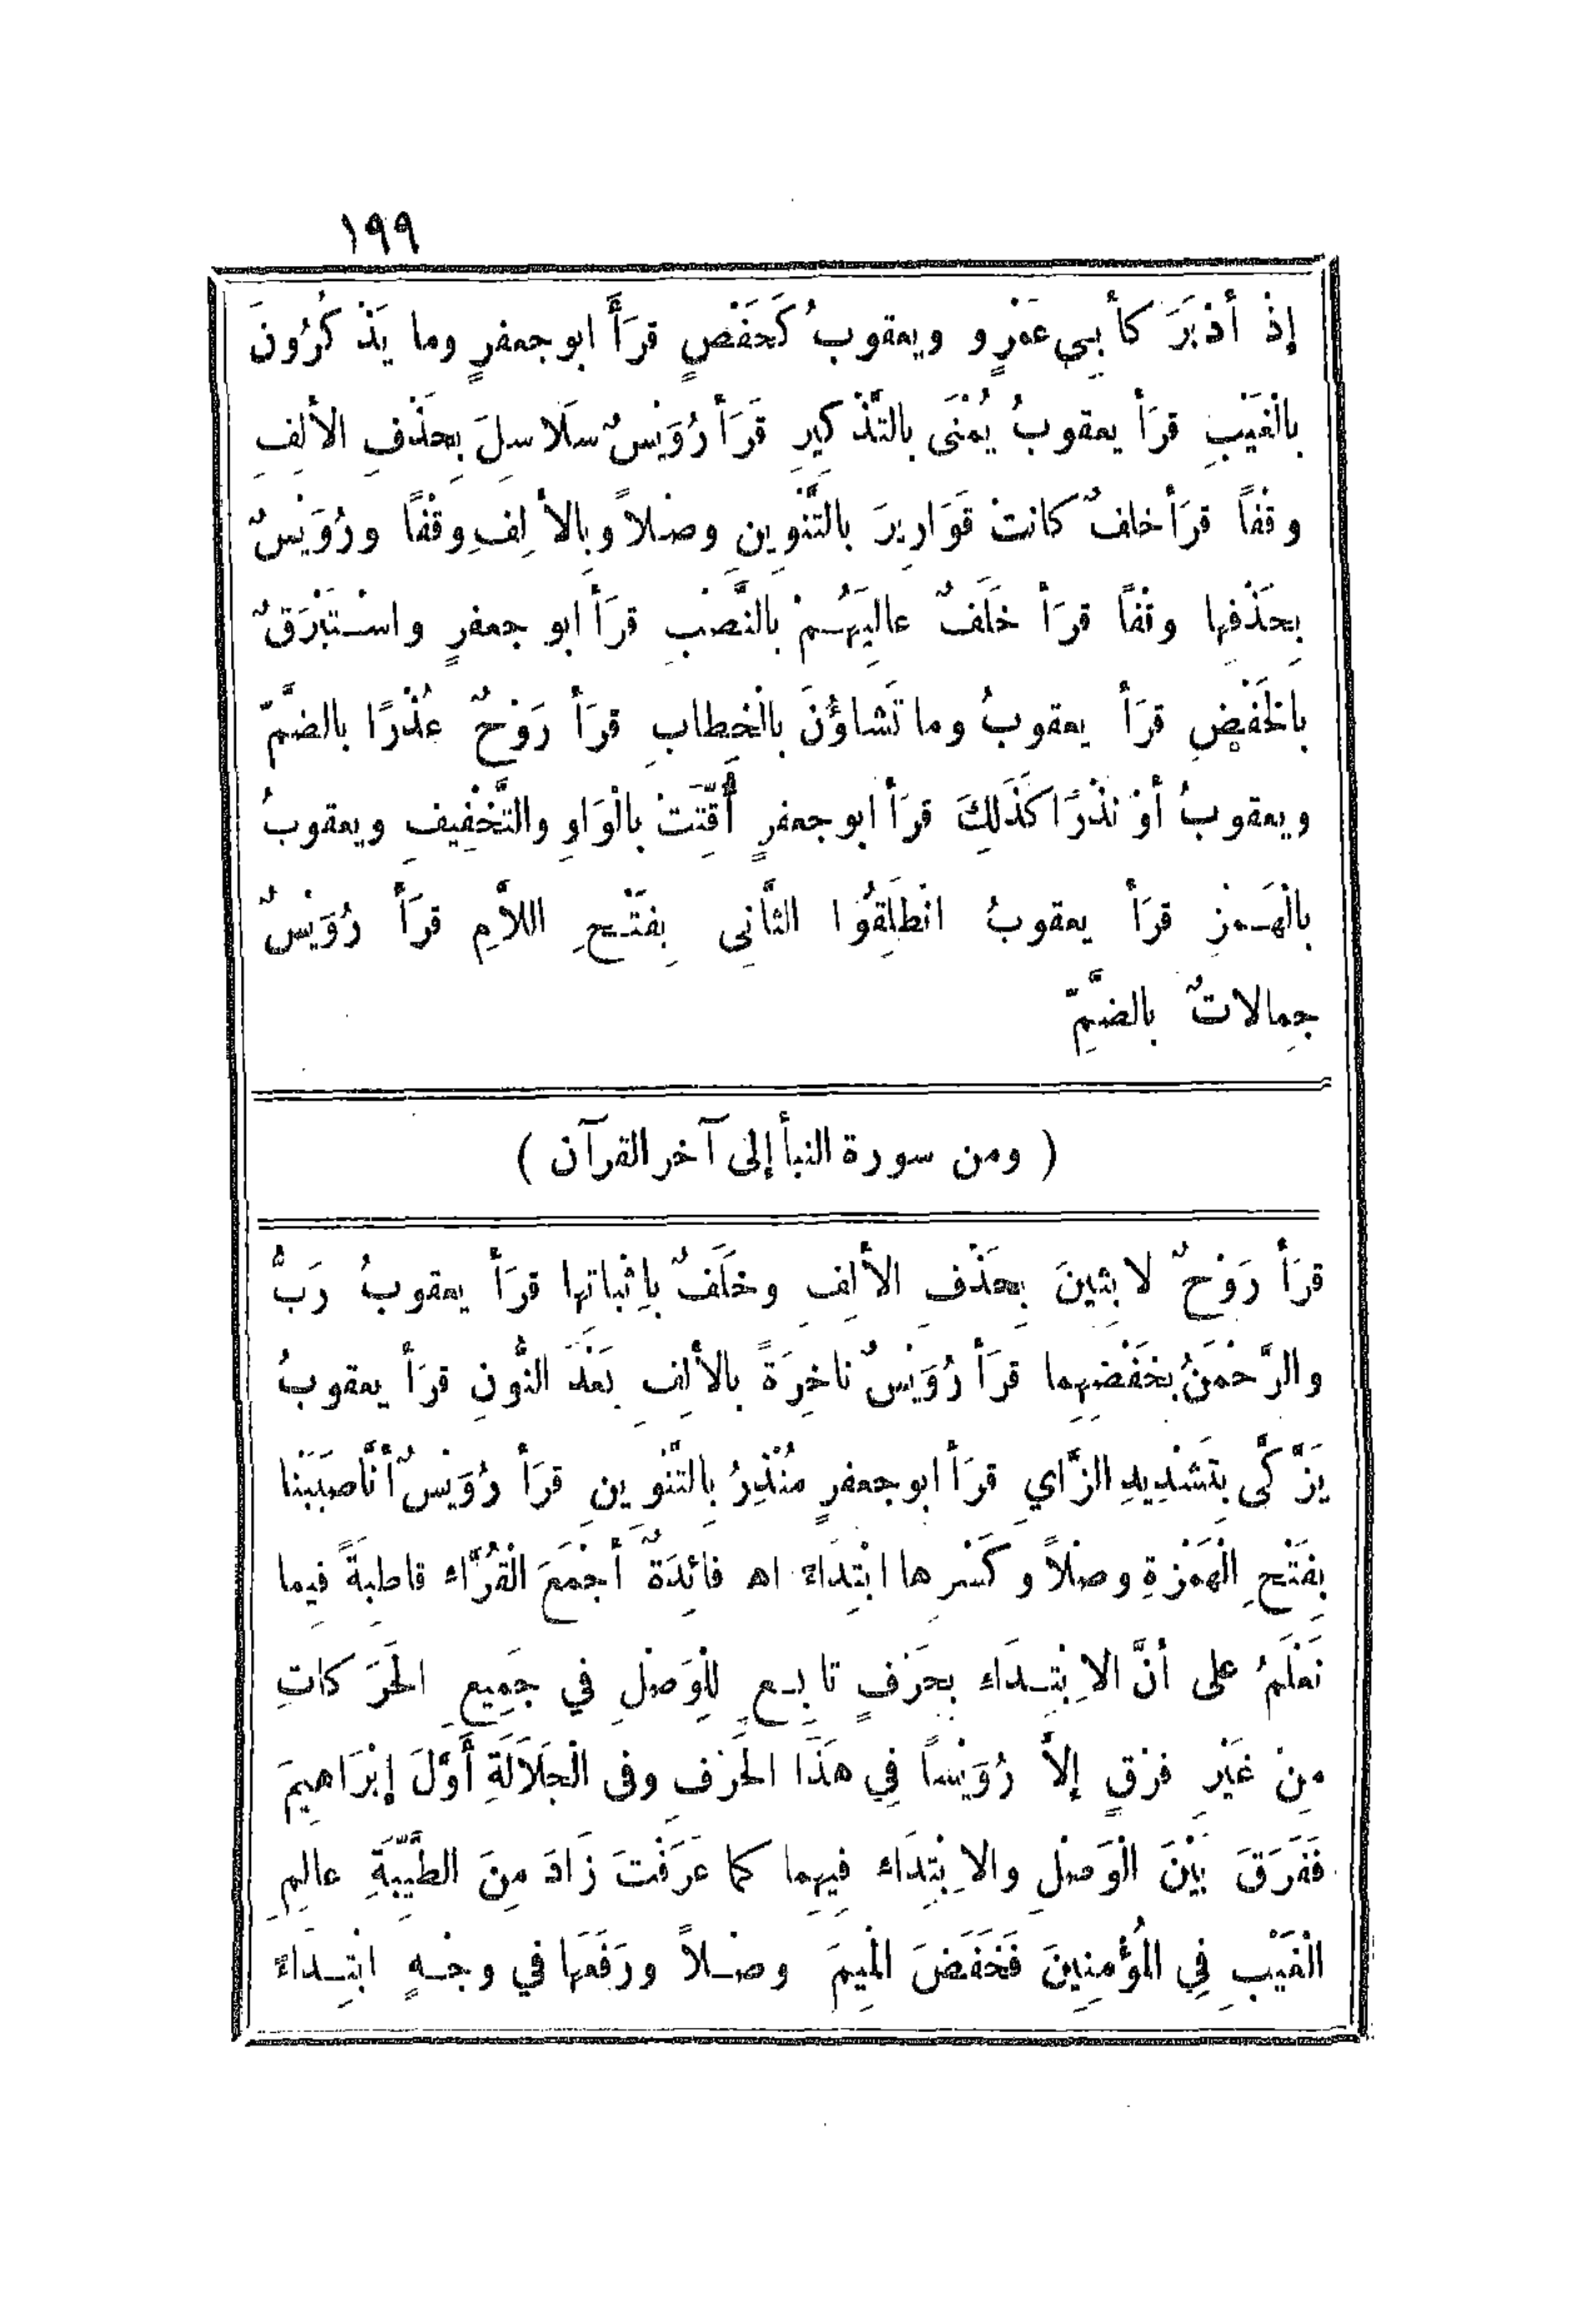 ١٩٩
إِذْ أَدْبَرَ كأَبِي عَمْرٍو ويعقوبُ كَحَفْصٍ قرَأَ ابو جعفرٍ وما يَذْ كُرُونَ
بالْغَيْبِ قرَأَ يعقوبُ يُمْنَى بالتَّذْ كيرِ قَرَأَ رُوَيْسٌ سَلَاسِلَ بِحَذْفِ الأَلِفِ
وقْفاً قرَأَ خلفٌ كانتْ قَوَارِيرَ بالتَّنْوِينِ وصْلاً وبِالأَلِفِ وقْفًا ورُوَيْسٌ
بِحَذْفِها وقْفاً قرَأَ خَلَفٌ عالِيَهُمْ بالنَّصْبِ قرَأَ ابو جعفرٍ واسْتَبْرَقٌ
بالخَفْضِ قرَأَ يعقوبُ وما تَشاؤُنَ بالْخِطابِ قرَأَ رَوْحٌ عُذْرًا بالضَّمِّ
ويعقوبُ أَوْ نُذْرًا كَذَلِكَ قرَأَ ابو جعفرٍ أُقِّتَتْ بالْوَاوِ والتَّخْفِيفِ ويعقوبُ
بالْهَمْزِ قرَأَ يعقوبُ انْطَلِقُوا الثَّانِي بِفَتْحِ اللاَّمِ قرَأَ رُوَيْسٌ
جِمالاتٌ بالضَّمِّ
( ومن سورة النبأ إلى آخر القرآن )
قرَأَ رَوْحٌ لابِثِينَ بِحَذْفِ الأَلِفِ وخَلَفٌ بإِثْباتِها قرَأَ يعقوبُ رَبُّ
والرَّحْمَنُ بخَفْضِهِما قرَأَ رُوَيْسٌ ناخِرَةً بالأَلِفِ بَعْدَ النُّونِ قرَأَ يعقوبُ
يَزَّكَّى بِتَشْدِيدِ الزَّايِ قرَأَ ابو جعفرٍ مُنْذِرُ بِالتَّنْوِينِ قرَأَ رُوَيْسٌ أَنَّا صَبَبْنا
بِفَتْحِ الْهَمْزَةِ وصْلاً وكَسْرِها ابْتِدَاءً اه فائِدَةٌ أَجْمَعَ الْقُرَّاء قاطِبَةً فِيما
نَعْلَمُ على أَنَّ الابْتِدَاء بِحَرْفٍ تابِعٍ لِلْوَصْلِ في جَمِيعِ الحَرَكاتِ
مِنْ غَيْرِ فرْقٍ إلاَّ رُوَيْساً فِي هَذَا الحَرْفِ وفى الْجَلَالَةِ أَوَّلَ إبْرَاهِيمَ
فَفَرَقَ بَيْنَ الْوَصْلِ والابْتِدَاء فِيهِما كما عَرَفْتَ زَادَ مِنَ الطَّيِّبَةِ عالِمِ
الْغَيْبِ فِي الْمُؤْمِنِينَ فَخَفَضَ الْمِيمَ وصْلاً ورَفَعَها في وجْهٍ ابْتِدَاءً